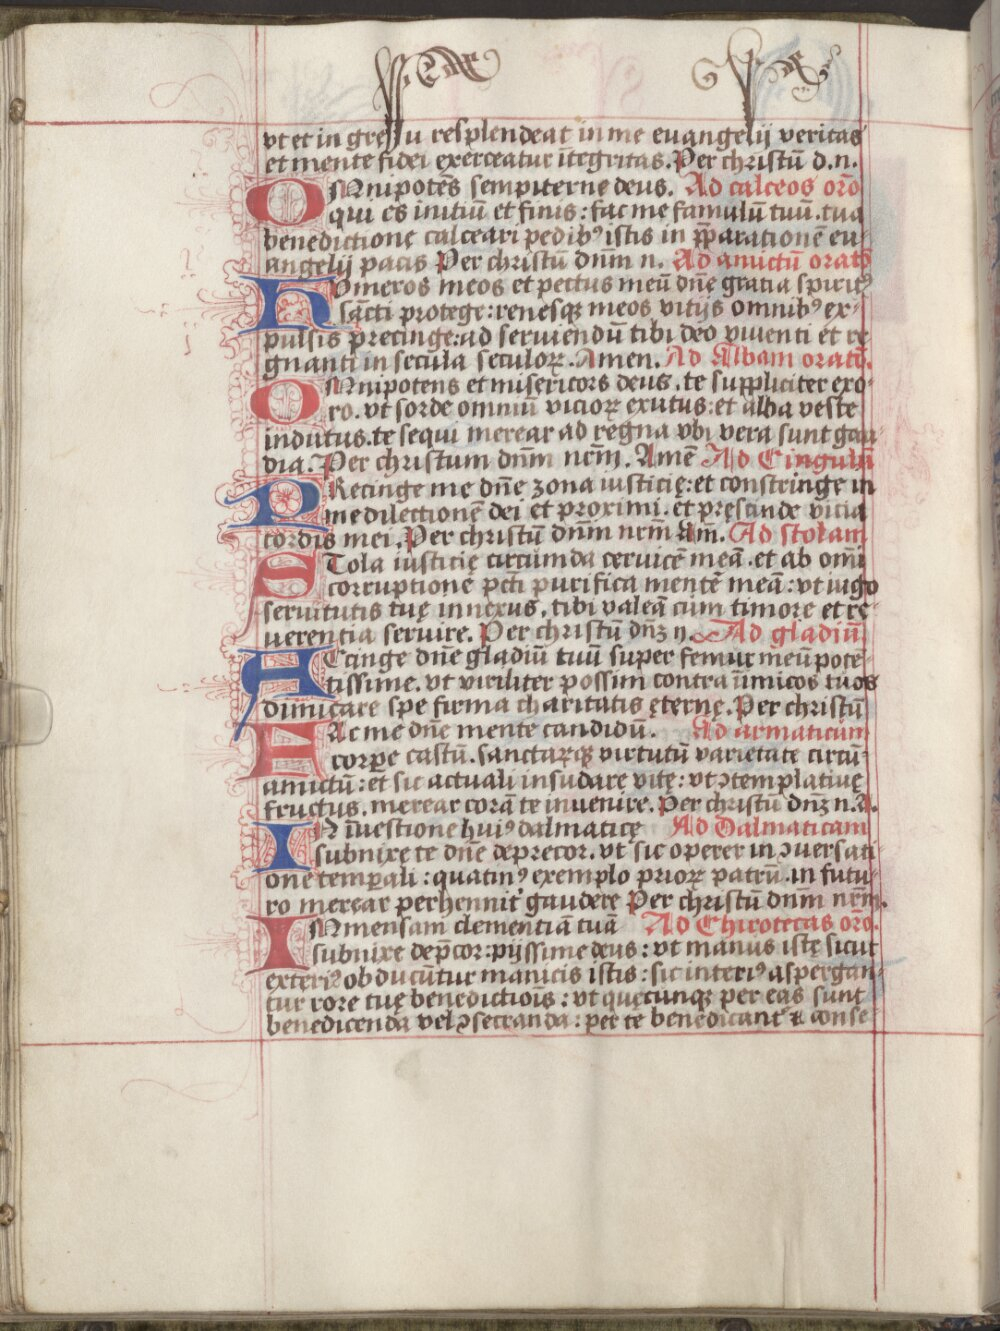 vt et in gressu resplendeat in me euangelij veritas
et mente fidei exerceatur itegritas. Per christū d.n.
OMnipotēs sempiterne deus. Ad calceos orō
qui es initiū et finis: fac me famulū tuū. tua
benedictione calceari pedibꝰ istis in p̄parationē eu-
angelij pacis Per christū dnm n. Ad amictū oratō
HVmeros meos et pectus meū dn̄e gratia spiritꝰ
sācti protege: renesqꝫ meos vitijs omnibꝰ ex-
pulsis precinge: ad seruiendū tibi deo viuenti et re
gnanti in secula seculoꝝ. Amen. Ad Albam oratō.
OMnipotens et misericors deus. te suppliciter exo-
ro. vt sorde omniū vicioꝝ exutus: et alba veste
indutus. te sequi merear ad regna vbi vera sunt gau
dia. Per christum dnm nrm̄. Amē Ad Cingulū
PRecinge me dn̄e zona iusticię: et constringe in
me dilectionē dei et proximi. et pręscinde vicia
cordis mei. Per christū dnm̄ nrm̄ Am̄. Ad stolam
STola iusticię circumda ceruicē meā. et ab omī
corruptione pcti purifica mentē meā: vt iugo
seruitutis tuę innexus. tibi valeā cum timore et re-
uerentia seruire. Per christū dnꝫ n. Ad gladiū
ACcinge dn̄e gladiū tuū super femur meū potē-
tissime. vt viriliter possim contra inimicos tuos
dimicare spe firma charitatis ęternę. Per christū
FAc me dn̄e mente candidū. Ad armaticum
corpe castū. sanctarꝗꝫ virtutū varietate circū-
amictū: et sic actuali insudare vitę: vt ꝯtemplatiuę
fructus. merear corā te inuenire. Per christū dnꝫ n. A.
IN īuestione huiꝰ dalmaticę Ad Dalmaticam
subnixe te dn̄e deprecor. vt sic operer in ꝯuersati
one tempali: quatinꝰ exemplo prioꝝ patrū. in futu-
ro merear perhennit̉ gaudere Per christū dnm nrm̄.
IMmensam clementiā tuā Ad Chirotecas orō.
subnixe dep̄cor: pijssime deus: vt manus istę sicut
exteriꝰ obducūtur manicis istis: sic interiꝰ aspergan-
tur rore tuę benedictiois̄: vt quęcunqꝫ per eas sunt
benedicenda vel ꝯsecranda: per te benedicant̉ & conse-